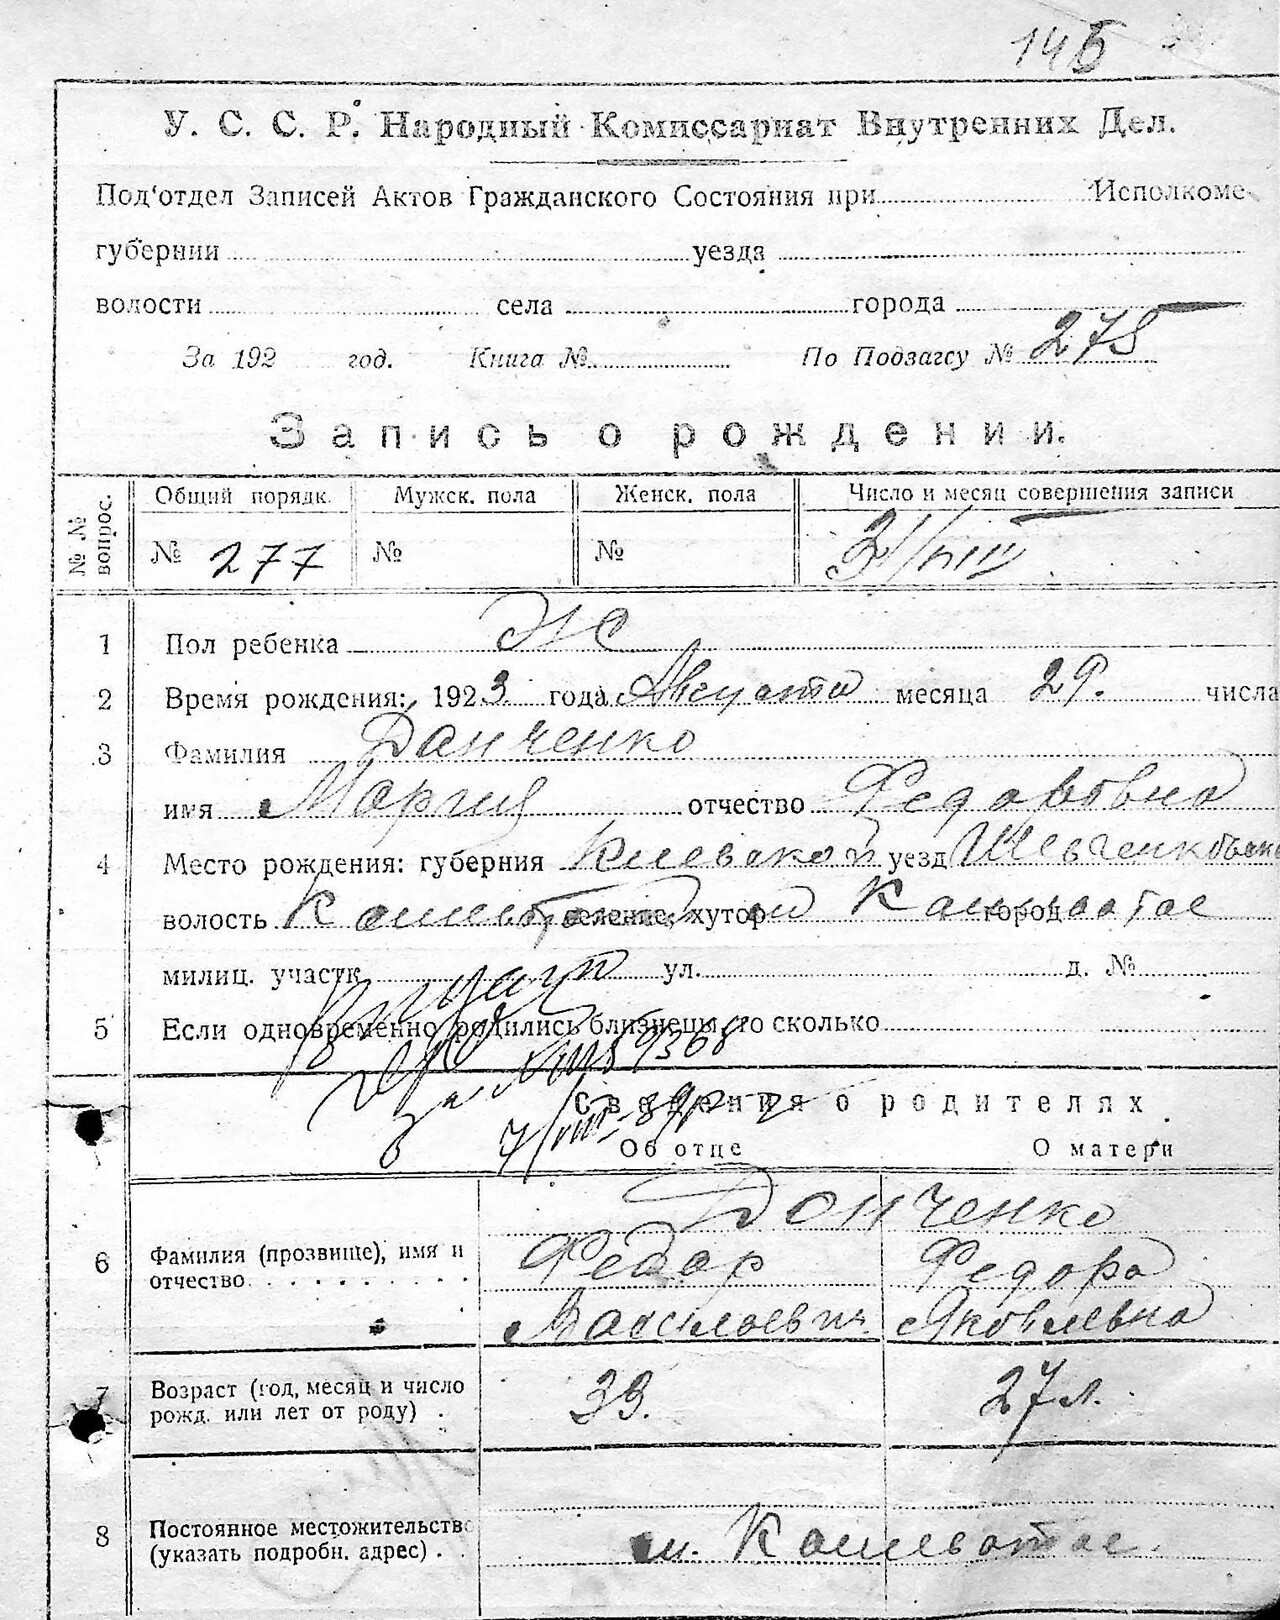 145
У. С. С. Р. Народный Комиссариат Внутренних Дел.
Под'отдел Записей Актов Гражданского Состояния при Исполкоме
губернии уезда
волости села города
За 192 год. Книга № По Подзагсу № 275
Запись о рождении.
№ № вопрос. Общий порядк. Мужск. пола Женск. пола Число и месяц совершения записи
№ 277 № № 31/VIII
1 Пол ребенка ж
2 Время рождения: 1923 года Августа месяца 29. числа
3 Фамилия Данченко
имя Мария отчество Федоровна
4 Место рождения: губерния Киевской уезд Шевченковский
волость Кошеватской селение, хутор м Кошеватое город
милиц. участк ул. д. №
5 Если одновременно родились близнецы, то сколько
Сведения о родителях
Об отце О матери
Донченко
6 Фамилия (прозвище), имя и отчество Федор Федора
Васильевич. Яковлевна
7 Возраст (год, месяц и число рожд. или лет от роду) . 39. 27 л.
8 Постоянное местожительство (указать подробн. адрес) . . м. Кошеватое.